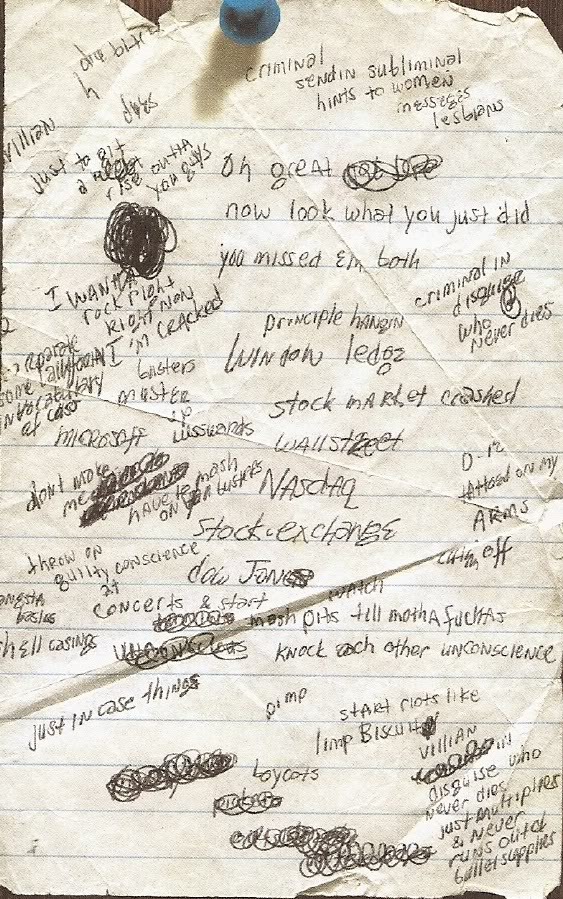 criminal
sendin subliminal
hints to women
messages
lesbians
dues
villian
Just to git
a
rise outta
you guys
Oh great
now look what you just did
you missed em both
I WANTA
rock right
right now
I'm cracked
criminal in
disguise
who
never dies
principle hangin
window ledge
busters
muster
up
vocabulary
at cost
stock market crashed
microsoft
wallstreet
dont make
me
have to mosh
on
busters
NASdaq
D-12
tattooed on my
ARMS
stock-exchange
throw on
guilty conscience
at
dow Jones
concerts & start
watch
mosh pits till motha fuckas
shell casings
knock each other unconscience
just in case things
pimp
start riots like
limp Biscuit
boycots
villian
in
disguise who
never dies
just multiplies
& never
runs outta
bullet supplies